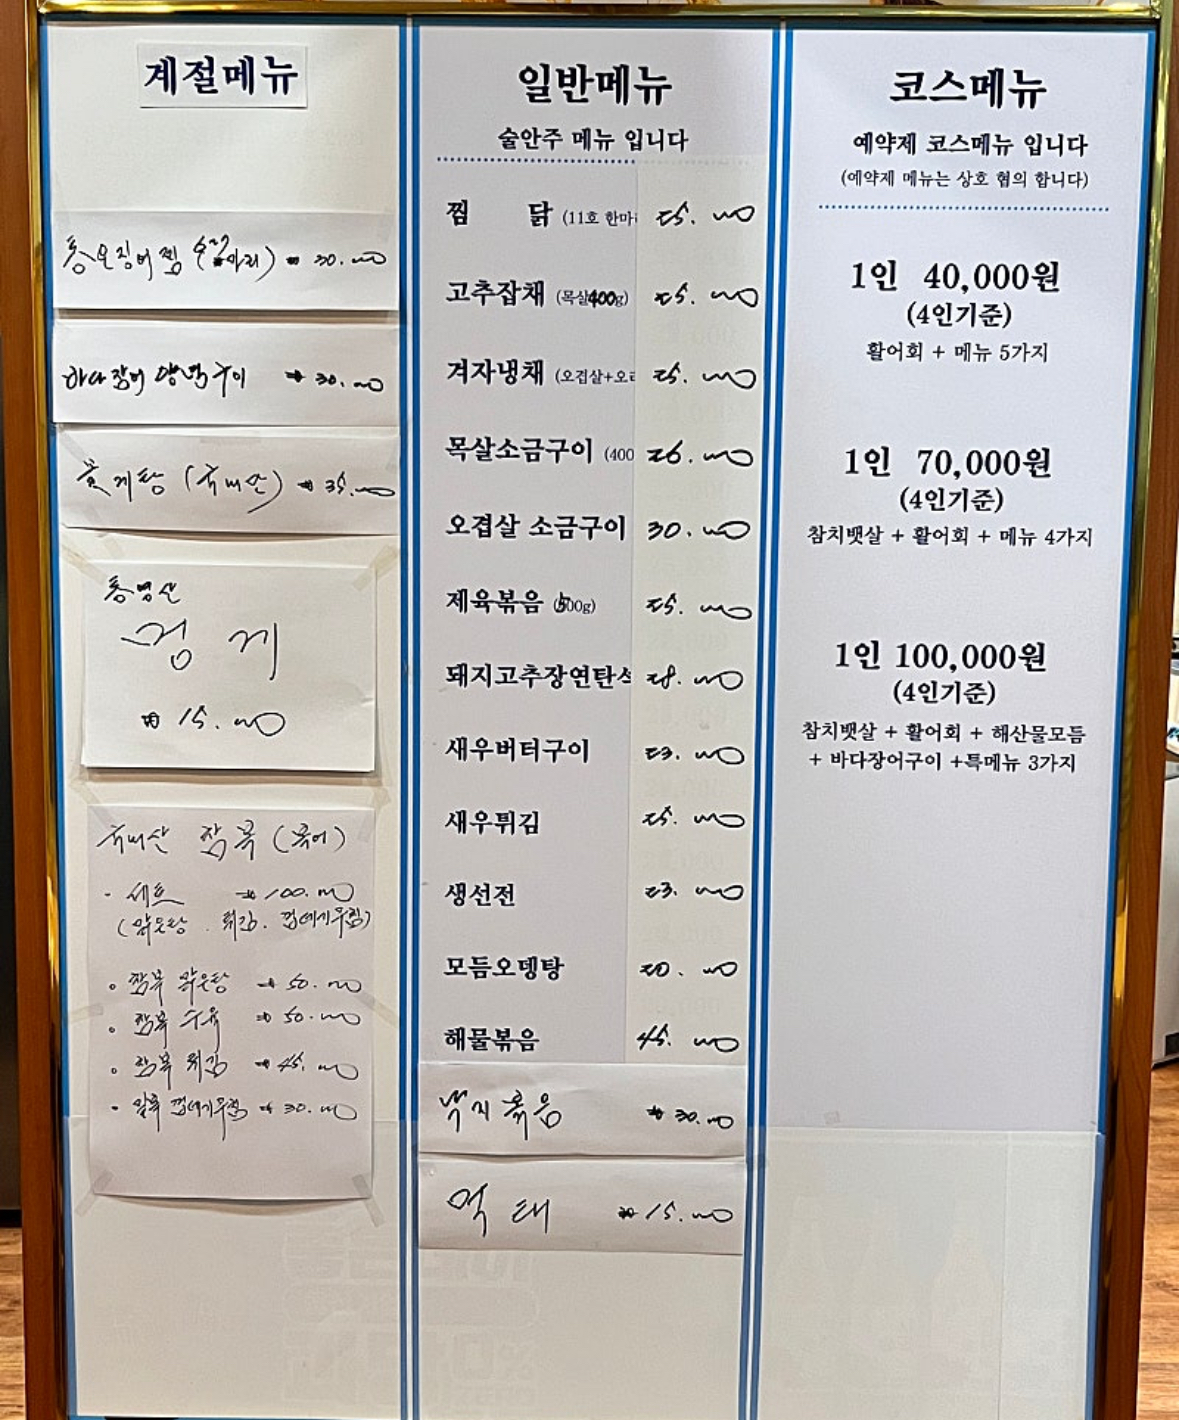 계절메뉴
통오징어찜 (2마리) ₩ 30.000
바다장어 양념구이 ₩ 30.000
꽃게탕 (국내산) ₩ 35.000
통영산
멍게
₩ 15.000
국내산 참복 (복어)
- 세트 ₩ 100.000
(맑은탕 . 튀김 . 껍데기무침)
○ 참복 맑은탕 ₩ 50.000
○ 참복 수육 ₩ 50.000
○ 참복 튀김 ₩ 45.000
- 참복 껍데기무침 ₩ 30.000
일반메뉴
술안주 메뉴 입니다
찜 닭 (11호 한마리 25.000
고추잡채 (목살400g) 25.000
겨자냉채 (오겹살+오 25.000
목살소금구이 (400 26.000
오겹살 소금구이 30.000
제육볶음 (500g) 25.000
돼지고추장연탄 28.000
새우버터구이 23.000
새우튀김 25.000
생선전 23.000
모듬오뎅탕 20.000
해물볶음 45.000
낙지볶음 ₩ 30.000
먹태 ₩ 15.000
코스메뉴
예약제 코스메뉴 입니다
(예약제 메뉴는 상호 협의 합니다)
1인 40,000원
(4인기준)
활어회 + 메뉴 5가지
1인 70,000원
(4인기준)
참치뱃살 + 활어회 + 메뉴 4가지
1인 100,000원
(4인기준)
참치뱃살 + 활어회 + 해산물모듬
+ 바다장어구이 +특메뉴 3가지